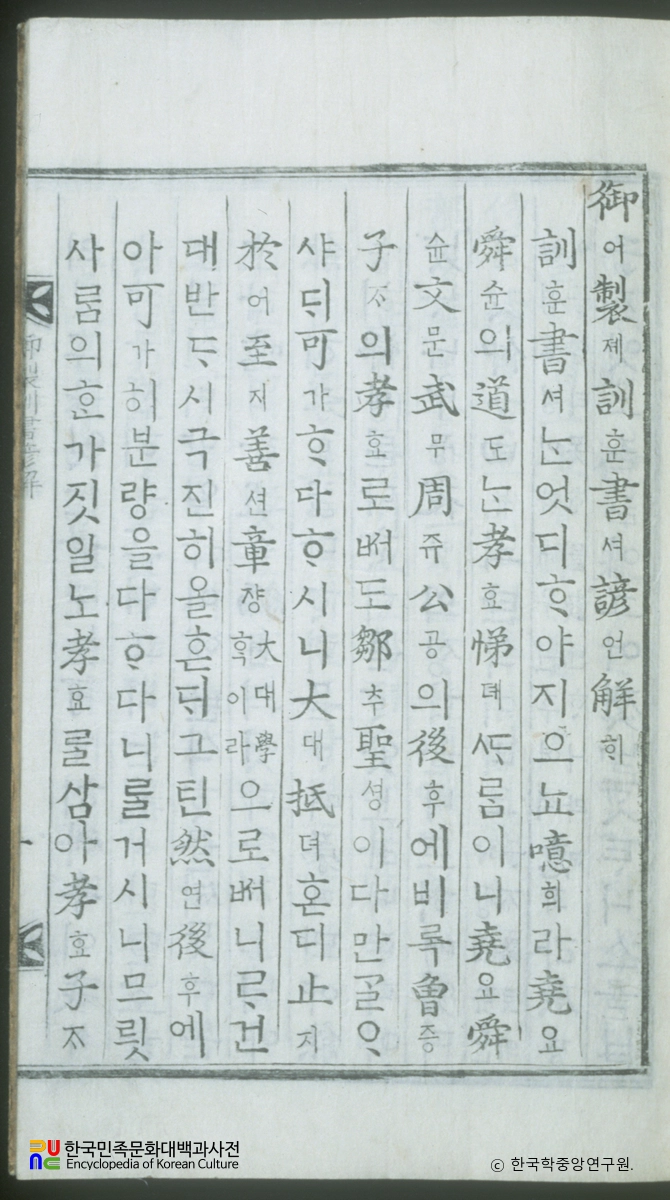 御어製제訓훈書셔諺언解ᄒᆡ
訓훈書셔ᄂᆞᆫ엇디ᄒᆞ야지으뇨噫희라堯요
舜슌의道도ᄂᆞᆫ孝효悌뎨ᄯᆞᄅᆞᆷ이니堯요舜
슌文문武무周쥬公공의後후에비록曾증
子ᄌᆞ의孝효로ᄡᅥ도鄒추聖셩이다만ᄀᆞᆯᄋᆞ
샤ᄃᆡ可가ᄒᆞ다ᄒᆞ시니大대抵뎌혼디止지
於어至지善션章쟝大대學ᄒᆞᆨ이라으로ᄡᅥ니ᄅᆞ건
대반ᄃᆞ시극진히올흔ᄃᆡ그틴然연後후에
아可가히분량을다ᄒᆞ다니ᄅᆞᆯ거시니므릇
사ᄅᆞᆷ의ᄒᆞᆫ가짓일노孝효ᄅᆞᆯ삼아孝효子ᄌᆞ
御製訓書諺解
한국민족문화대백과사전
Encyclopedia of Korean Culture
ⓒ 한국학중앙연구원.